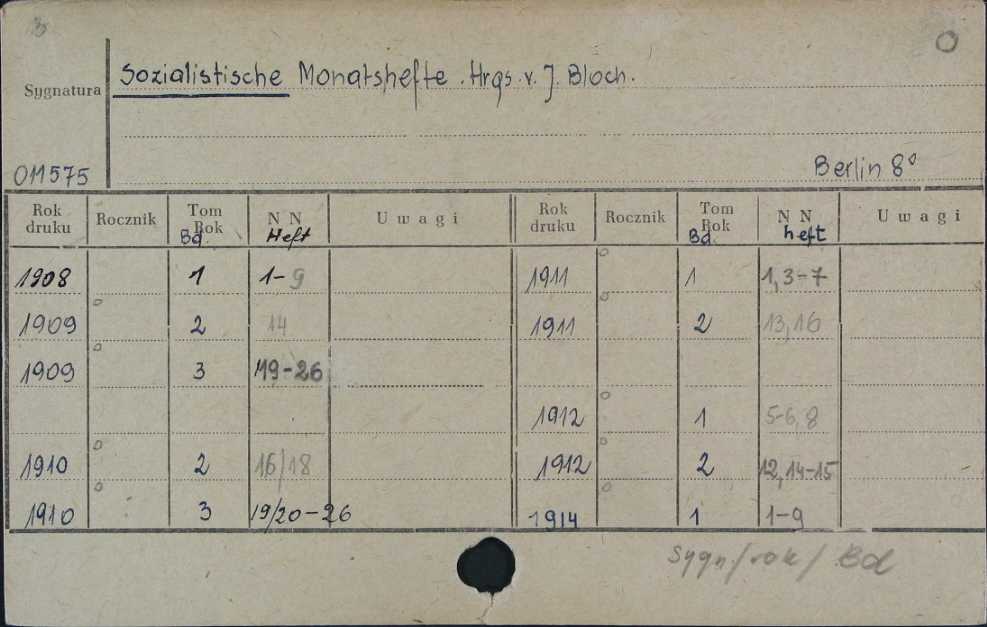 3 O
Sozialistische Monatshefte. Hrgs. v. J. Bloch.
Sygnatura
011575 Berlin 8°
Rok druku Rocznik Tom Rok Bd. N N Heft U w a g i Rok druku Rocznik Tom Rok Bd. N N heft U w a g i
1908 1 1-9 1911 1 1,3-7
1909 2 14 1911 2 13,16
1909 3 19-26
1912 1 5-6,8
1910 2 16/18 1912 2 12,14-15
1910 3 19/20-26 1914 1 1-9
Sygn/rok/Bd